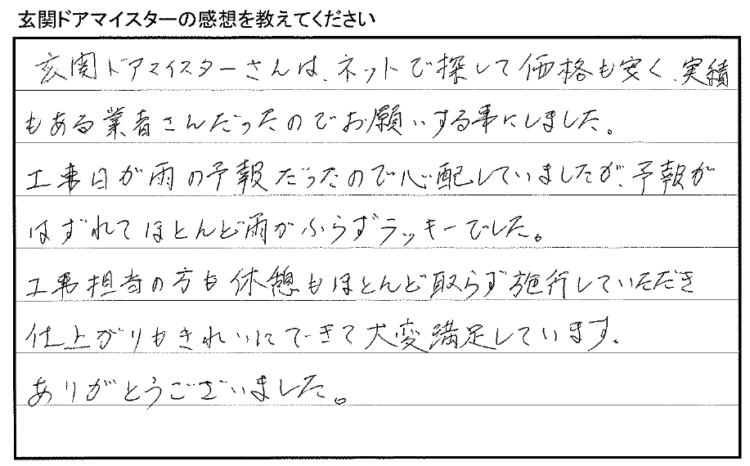 玄関ドアマイスターの感想を教えてください
玄関ドアマイスターさんは、ネットで探して価格も安く、実績
もある業者さんだったのでお願いする事にしました。
工事日が雨の予報だったので心配していましたが、予報が
はずれてほとんど雨がふらずラッキーでした。
工事担当の方も休憩もほとんど取らず施行していただき
仕上がりもきれいにできて大変満足しています。
ありがとうございました。